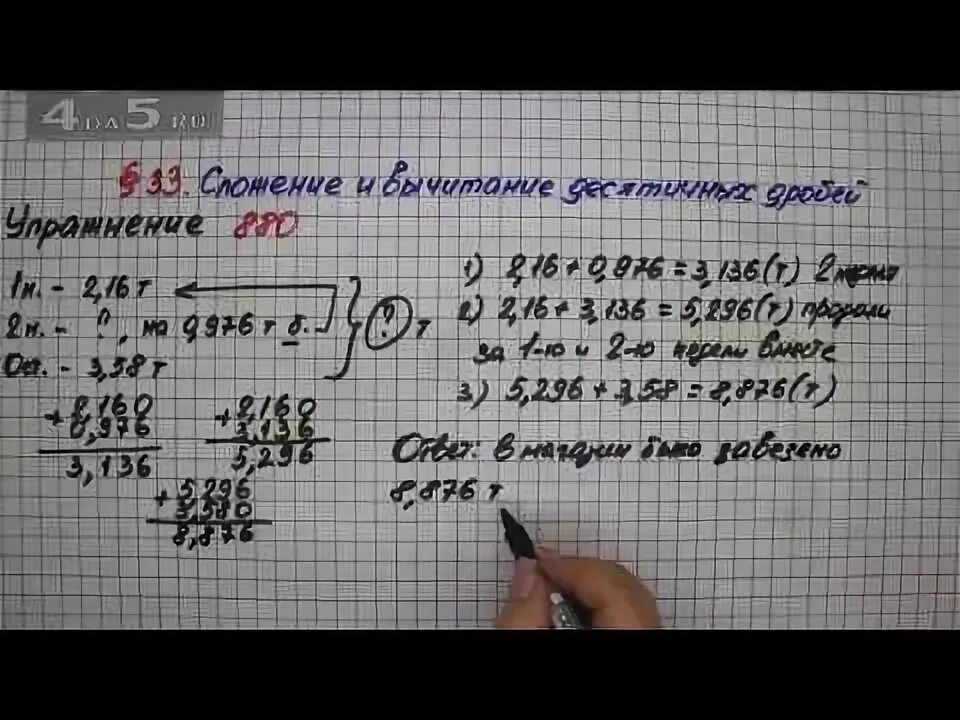 4 на 5 .ru
§ 33. Сложение и вычитание десятичных дробей
Упражнение 880
1н. - 2,16 т
2н. - ?, на 0,976 т б.
Ост. - 3,58 т
? т
+ 2,160
0,976
3,136
+ 2,160
3,136
5,296
+ 5,296
3,580
8,876
1) 2,16 + 0,976 = 3,136 (т)
2) 2,16 + 3,136 = 5,296 (т) продали
за 1-ю и 2-ю недели вместе
3) 5,296 + 3,58 = 8,876 (т)
Ответ: в магазин было завезено
8,876 т